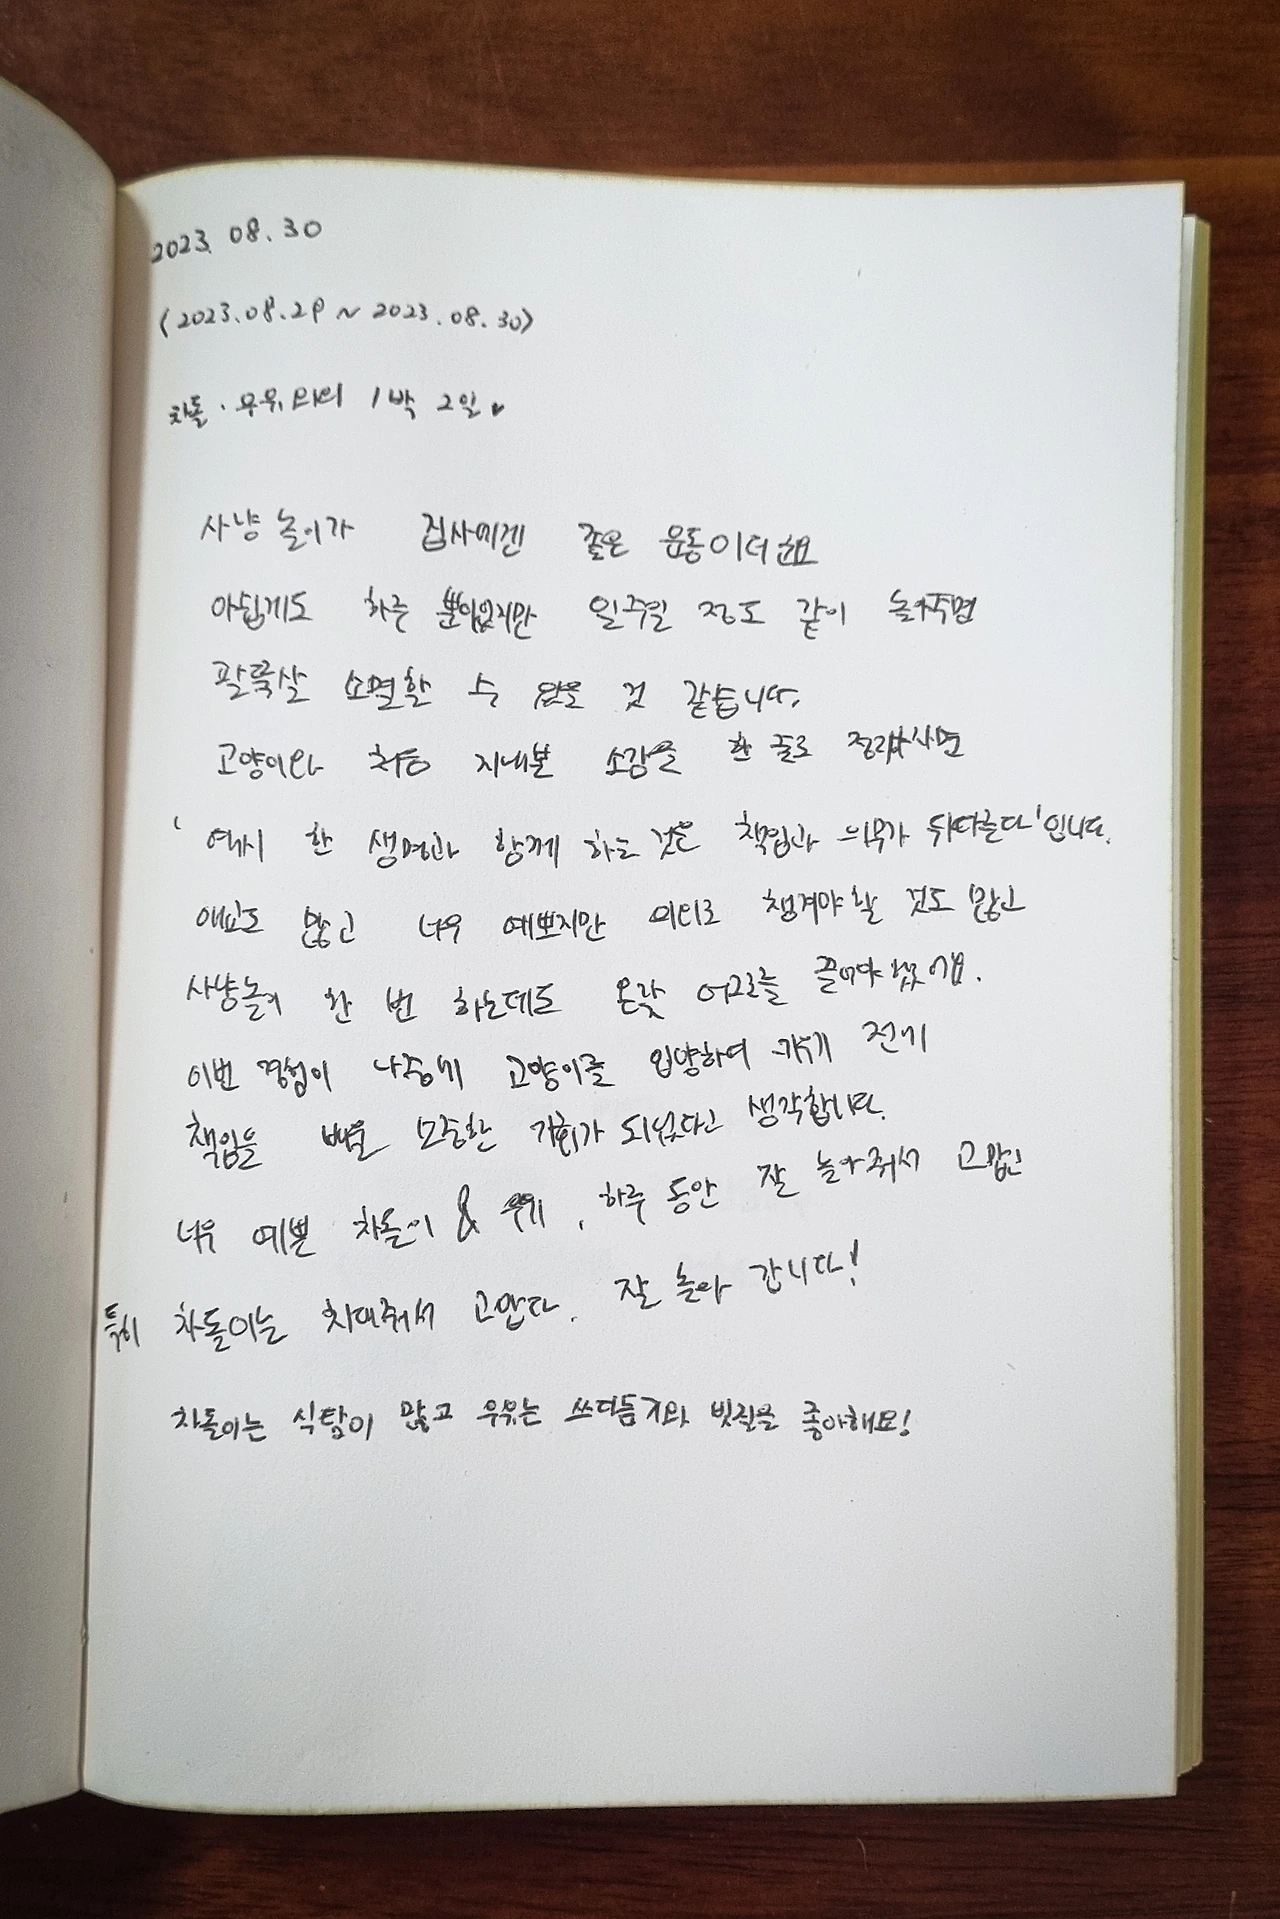 2023. 08. 30
(2023.08.29 ~ 2023.08.30)
차돌 · 우유와의 1박 2일♥
사냥놀이가 집사에겐 좋은 운동이더라고요
아쉽게도 하루 뿐이었지만 일주일 정도 같이 놀아주면
팔뚝살 소멸할 수 있을 것 같습니다.
고양이와 처음 지내본 소감을 한 줄로 정리하자면
'역시 한 생명과 함께 하는 것은 책임과 의무가 뒤따른다'입니다.
애교도 많고 너무 예쁘지만 의외로 챙겨야할 것도 많고
사냥놀이 한 번 하는데도 온갖 어그로를 끌어야 했어요.
이번 경험이 나중에 고양이를 입양하여 키우기 전에
책임을 배울 소중한 기회가 되었다고 생각합니다.
너무 예쁜 차돌이 & 우유, 하루 동안 잘 놀아줘서 고맙고
특히 차돌이는 치대줘서 고맙다. 잘 놀아 갑니다!
차돌이는 식탐이 많고 우유는 쓰다듬기와 빗질을 좋아해요!